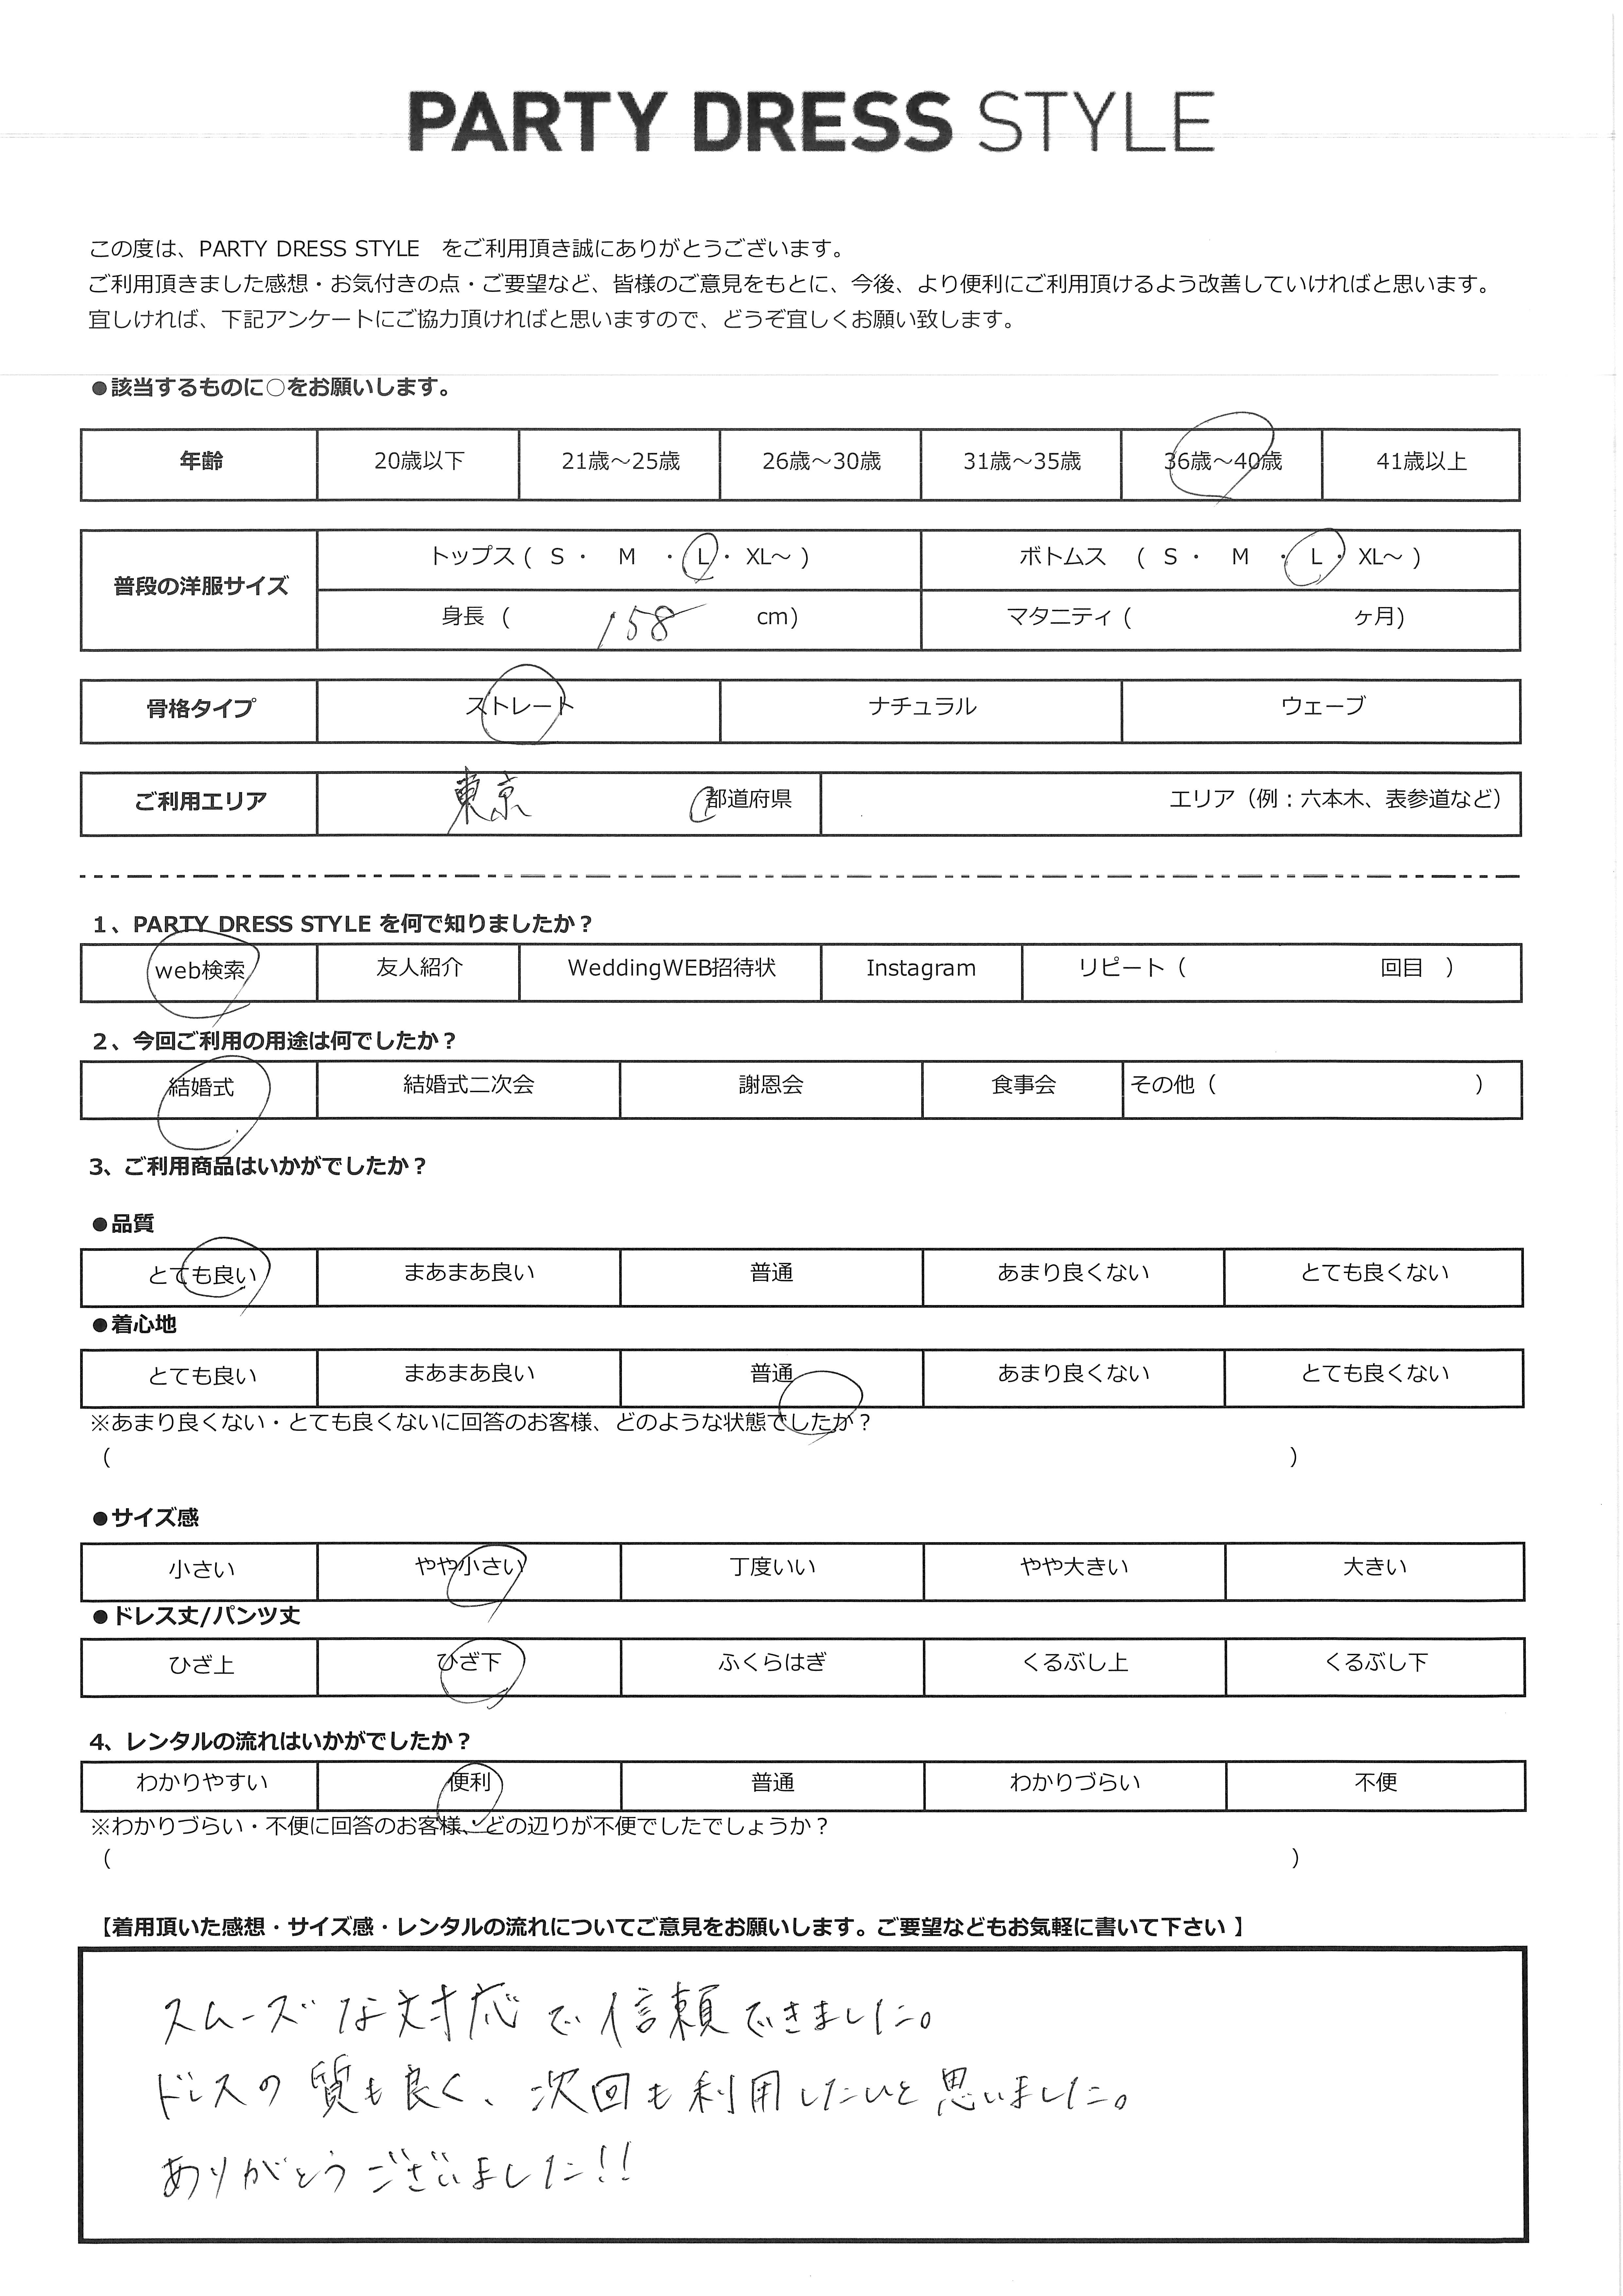 PARTY DRESS STYLE
この度は、PARTY DRESS STYLE　をご利用頂き誠にありがとうございます。
ご利用頂きました感想・お気付きの点・ご要望など、皆様のご意見をもとに、今後、より便利にご利用頂けるよう改善していければと思います。
宜しければ、下記アンケートにご協力頂ければと思いますので、どうぞ宜しくお願い致します。
●該当するものに○をお願いします。
年齢 20歳以下 21歳～25歳 26歳～30歳 31歳～35歳 36歳～40歳 41歳以上
普段の洋服サイズ
トップス ( S ・ M ・ L ・ XL～ ) ボトムス ( S ・ M ・ L ・ XL～ )
身長 ( 158 cm) マタニティ ( ヶ月)
骨格タイプ ストレート ナチュラル ウェーブ
ご利用エリア 東京 都道府県 エリア（例：六本木、表参道など）
1、PARTY DRESS STYLE を何で知りましたか？
web検索 友人紹介 WeddingWEB招待状 Instagram リピート（ 回目 ）
2、今回ご利用の用途は何でしたか？
結婚式 結婚式二次会 謝恩会 食事会 その他（ ）
3、ご利用商品はいかがでしたか？
●品質
とても良い まあまあ良い 普通 あまり良くない とても良くない
●着心地
とても良い まあまあ良い 普通 あまり良くない とても良くない
※あまり良くない・とても良くないに回答のお客様、どのような状態でしたか？
（ ）
●サイズ感
小さい やや小さい 丁度いい やや大きい 大きい
●ドレス丈/パンツ丈
ひざ上 ひざ下 ふくらはぎ くるぶし上 くるぶし下
4、レンタルの流れはいかがでしたか？
わかりやすい 便利 普通 わかりづらい 不便
※わかりづらい・不便に回答のお客様、どの辺りが不便でしたでしょうか？
（ ）
【着用頂いた感想・サイズ感・レンタルの流れについてご意見をお願いします。ご要望などもお気軽に書いて下さい 】
スムーズな対応で信頼できました。
ドレスの質も良く、次回も利用したいと思いました。
ありがとうございました!!